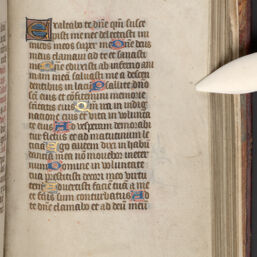 Exaltabo te dñe qm̄ susce
pisti me nec delectasti ini
micos meos super me Dñe deus
meus clamaui ad te et sanasti
me Dñe eduxisti ab inferno ani
mam meā saluasti me a descen
dentibus in lacū Psallite dño
sc̄i eius et cōfitemini memorie
sc̄itatis eius Qm̄ ira in indig
natione eius et vita in volunta
te eius Ad vesperum demorabi
tur fletus et ad matutinum le
titia Ego autem dixi in habū
dantia mea nō mouebor in eter
num Domine in voluntate
tua prestitisti decori meo virtu
tem Auertisti faciē tuā a me
et factus sum conturbatus Ad
te dñe clamabo et ad deū meū